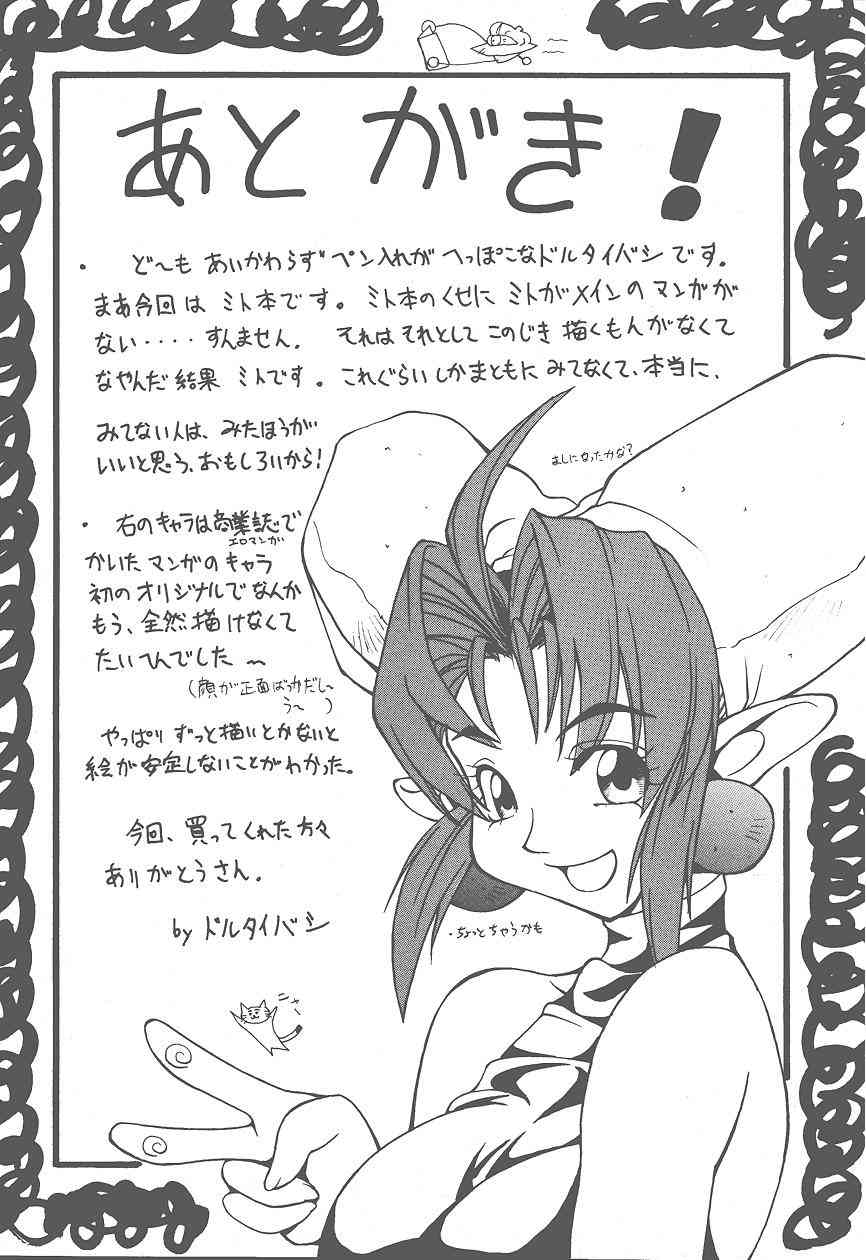 あとがき!
・ ど〜も あいかわらず ペン入れが へっぽこなドルタイバシです。
まあ今回は ミト本です。ミト本のくせに ミトがメインの マンガが
ない・・・・すんません。 それはそれとして このじき 描くもんがなくて
なやんだ結果 ミトです。これぐらいしかまともに みてなくて、本当に、
みてない人は、みたほうが
いいと思う、おもしろいから!
ましになったかな?
・ 右のキャラは商業誌で
エロマンガ
かいた マンガのキャラ
初のオリジナルでなんか
もう、全然描けなくて
たいへんでした〜
(顔が正面ばっかだし〜
う〜 )
やっぱり ずっと描いとかないと
絵が安定しないことがわかった。
今回、買ってくれた方々
ありがとうさん。
by ドルタイバシ
・ちょっとちゃうかも
ニャー